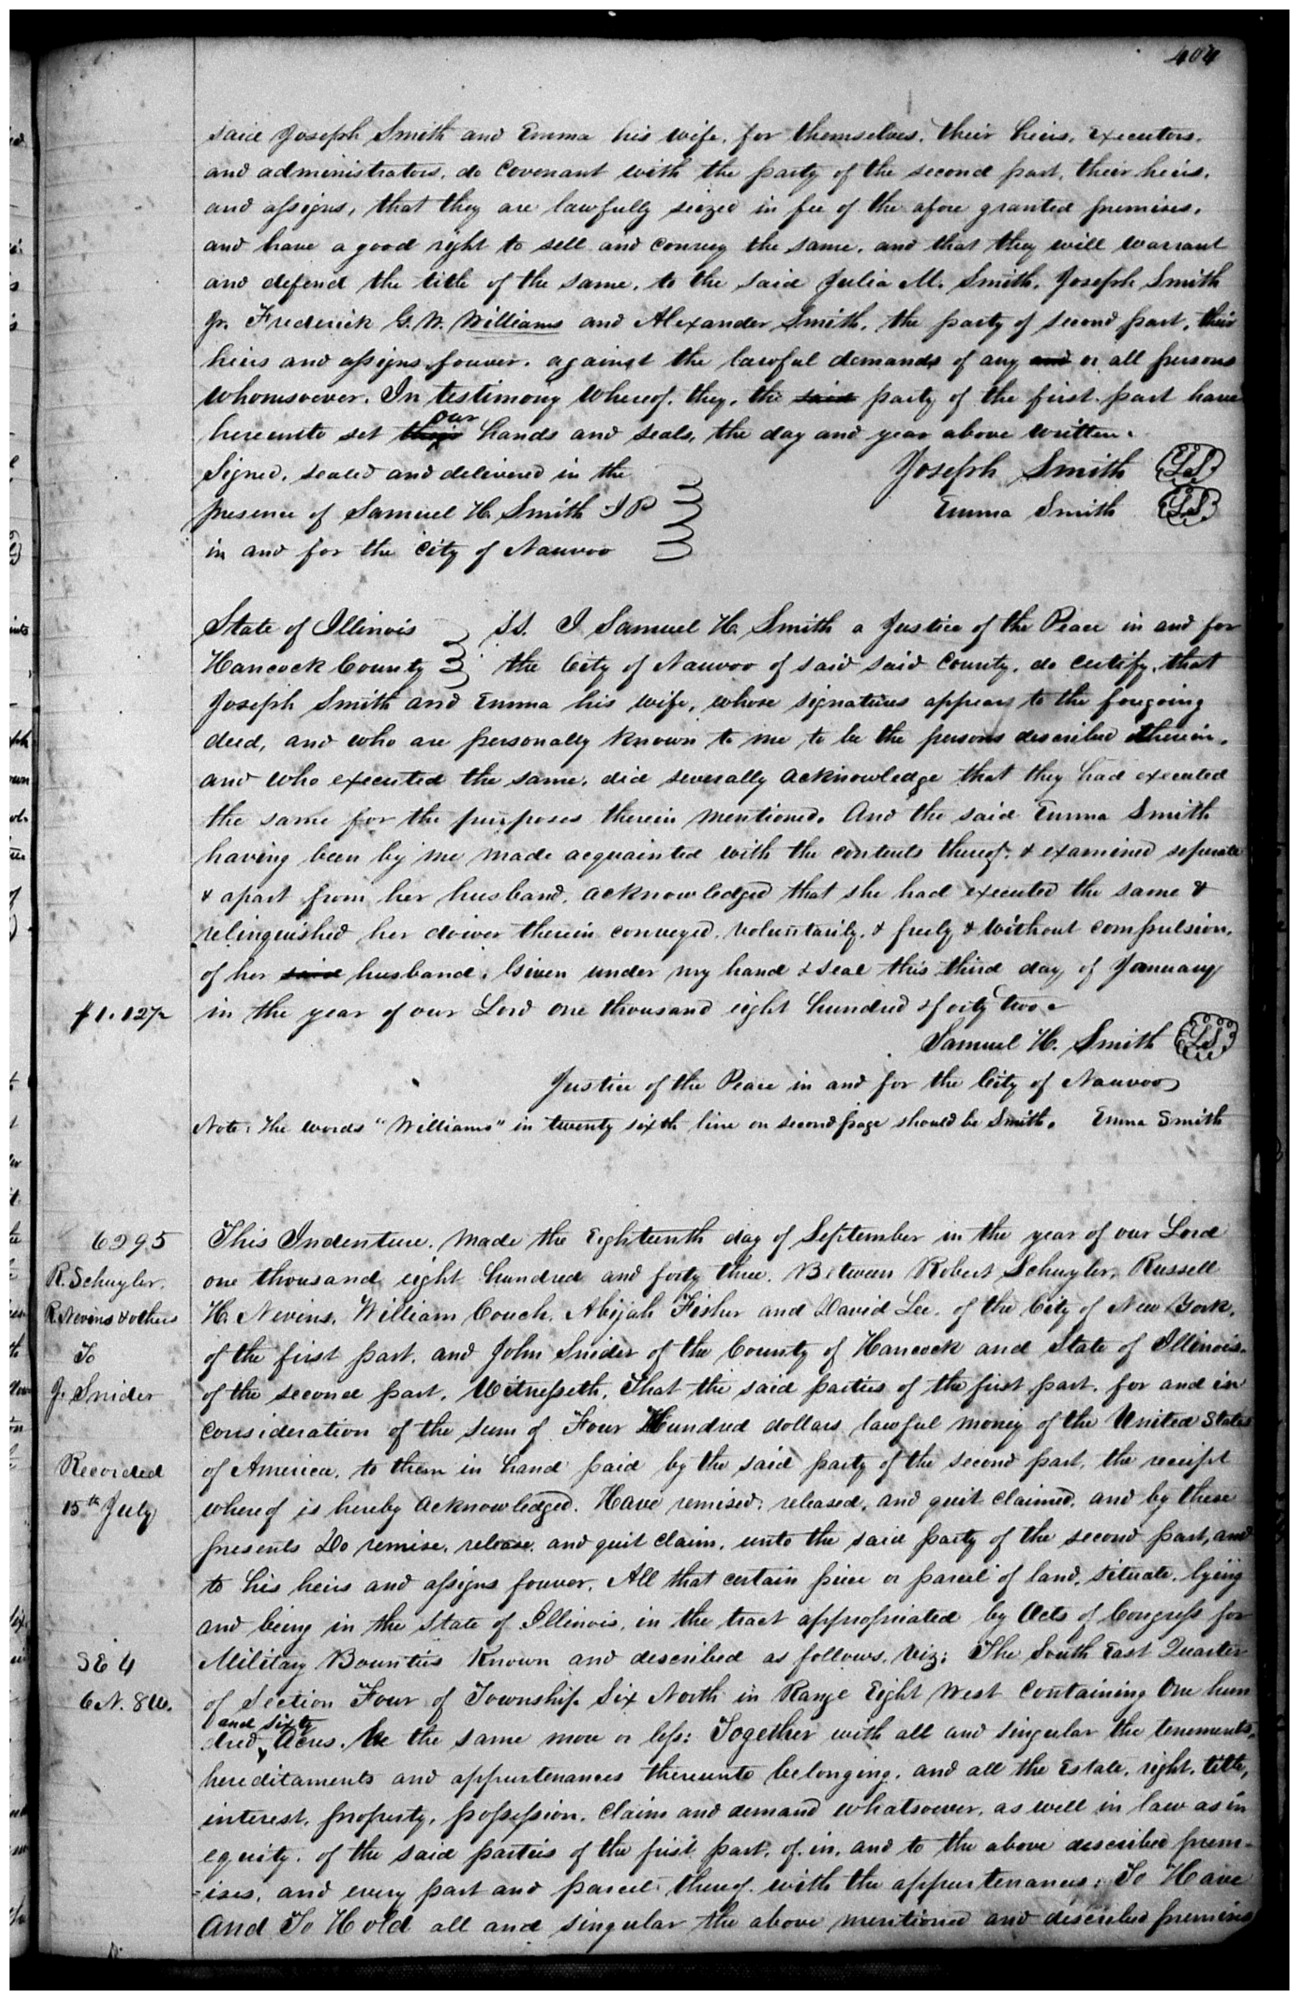 404
said Joseph Smith and Emma his wife, for themselves, their heirs, executors,
and administrators, do covenant with the party of the second part, their heirs,
and assigns, that they are lawfully seized in fee of the afore granted premises,
and have a good right to sell and convey the same, and that they will warrant
and defend the title of the same, to the said Julia M. Smith, Joseph Smith
Jr. Frederick G. W. Williams and Alexander Smith, the party of second part, their
heirs and assigns forever, against the lawful demands of any and or all persons
whomsoever. In testimony whereof, they, the said party of the first part have
our
hereunto set their hands and seals, the day and year above written.
Signed, sealed and delivered in the
Joseph Smith LS.
presence of Samuel H. Smith J P
Emma Smith LS.
in and for the City of Nauvoo
State of Illinois SS. I Samuel H. Smith a Justice of the Peace in and for
Hancock County the City of Nauvoo of said said County, do certify, that
Joseph Smith and Emma his wife, whose signatures appears to the foregoing
deed, and who are personally known to me to be the persons described therein,
and who executed the same, did severally acknowledge that they had executed
the same for the purposes therein mentioned. And the said Emma Smith
having been by me made acquainted with the contents thereof, & examined separate
& apart from her husband, acknowledged that she had executed the same &
relinquished her dower therein conveyed, voluntarily, & freely & without compulsion,
of her said husband. Given under my hand & seal this third day of January
$1.127½ in the year of our Lord one thousand eight hundred & forty two.
Samuel H. Smith LS
Justice of the Peace in and for the City of Nauvoo
Note: The words "Williams" in twenty sixth line on second page should be Smith. Emma Smith
6295 This Indenture, Made the Eighteenth day of September in the year of our Lord
R. Schuyler, one thousand eight hundred and forty three. Between Robert Schuyler, Russell
R. Nevins & others H. Nevins, William Couch, Abijah Fisher and David Lee, of the City of New York,
To of the first part, and John Snider of the County of Hancock and State of Illinois.
J. Snider of the second part, Witnesseth, That the said parties of the first part, for and in
consideration of the sum of Four Hundred dollars, lawful money of the United States
Recorded of America, to them in hand paid by the said party of the second part, the receipt
15th July whereof is hereby acknowledged. Have remised, released, and quit claimed, and by these
presents Do remise, release, and quit claim, unto the said party of the second part, and
to his heirs and assigns forever, All that certain piece or parcel of land, situate, lying
and being in the State of Illinois, in the tract appropriated by Acts of Congress for
SE 4 Military Bounties Known and described as follows, viz: The South East Quarter
6 N. 8 W. of Section Four of Township Six North in Range Eight West Containing One hun
and sixty
dred Acres, be the same more or less: Together with all and singular the tenements,
hereditaments and appurtenances thereunto belonging, and all the Estate, right, title,
interest, property, possession, claim and demand whatsoever, as well in law as in
equity, of the said parties of the first part, of, in, and to the above described prem-
-ises, and every part and parcel thereof with the appurtenances. To Have
And To Hold all and singular the above mentioned and described premises